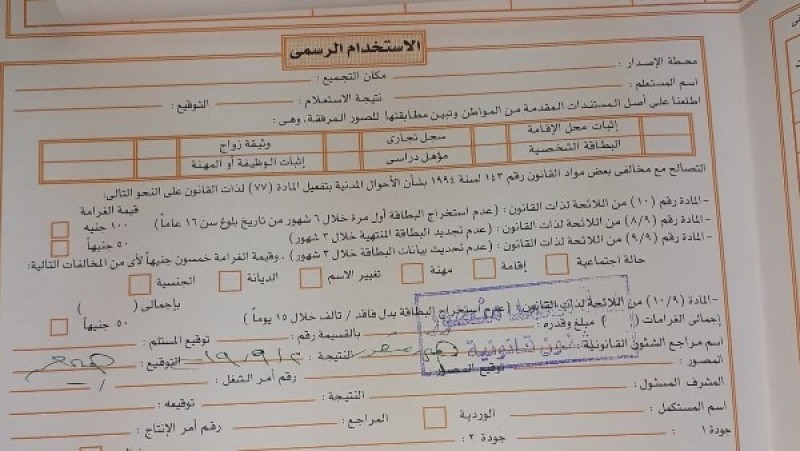 الاستخدام الرسمى
محطة الإصدار : مكان التجميع :
اسم المستعلم : نتيجة الاستعلام : التوقيع :
اطلعنا على أصل المستندات المقدمة من المواطن وتبين مطابقتها للصور المرفقة، وهى :
إثبات محل الإقامة سجل تجارى وثيقة زواج
البطاقة الشخصية مؤهل دراسى إثبات الوظيفة أو المهنة
التصالح مع مخالفى بعض مواد القانون رقم ١٤٣ لسنة ١٩٩٤ بشأن الأحوال المدنية بتفعيل المادة (٧٧) لذات القانون على النحو التالى:
قيمة الغرامة
-المادة رقم (١٠) من اللائحة لذات القانون : (عدم استخراج البطاقة أول مرة خلال ٦ شهور من تاريخ بلوغ سن ١٦ عاماً) ١٠٠ جنيه
-المادة رقم (٨/٩) من اللائحة لذات القانون : (عدم تجديد البطاقة المنتهية خلال ٣ شهور) ٥٠ جنيهاً
-المادة رقم (٩/٩) من اللائحة لذات القانون : (عدم تحديث بيانات البطاقة خلال ٣ شهور) ، وقيمة الغرامة خمسون جنيهاً لأى من المخالفات التالية:
حالة اجتماعية إقامة مهنة تغيير الاسم الديانة الجنسية
بإجمالى ( )
-المادة رقم (١٠/٩) من اللائحة لذات القانون : (عدم استخراج البطاقة بدل فاقد / تالف خلال ١٥ يوماً) ٥٠ جنيهاً
إجمالى الغرامات ( ) مبلغ وقدره : بالقسيمة رقم : توقيع المستلم :
اسم مراجع الشئون القانونية : النتيجة : التوقيع :
شئون قانونية
المصور : توقيع المصور : رقم أمر الشغل :
المشرف المسئول : النتيجة : توقيعه :
اسم المستكمل : الوردية المراجع : رقم أمر الإنتاج :
جودة ١ : جودة ٢ :